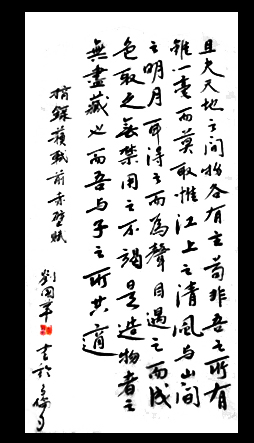 且夫天地之间物各有主苟非吾之所有
雖一毫而莫取惟江上之清風与山间
之明月耳得之而為聲目遇之而成
色取之無禁用之不竭是造物者之
無盡藏也而吾与子之所共適
摘錄蘇軾前赤壁賦
劉國 書於